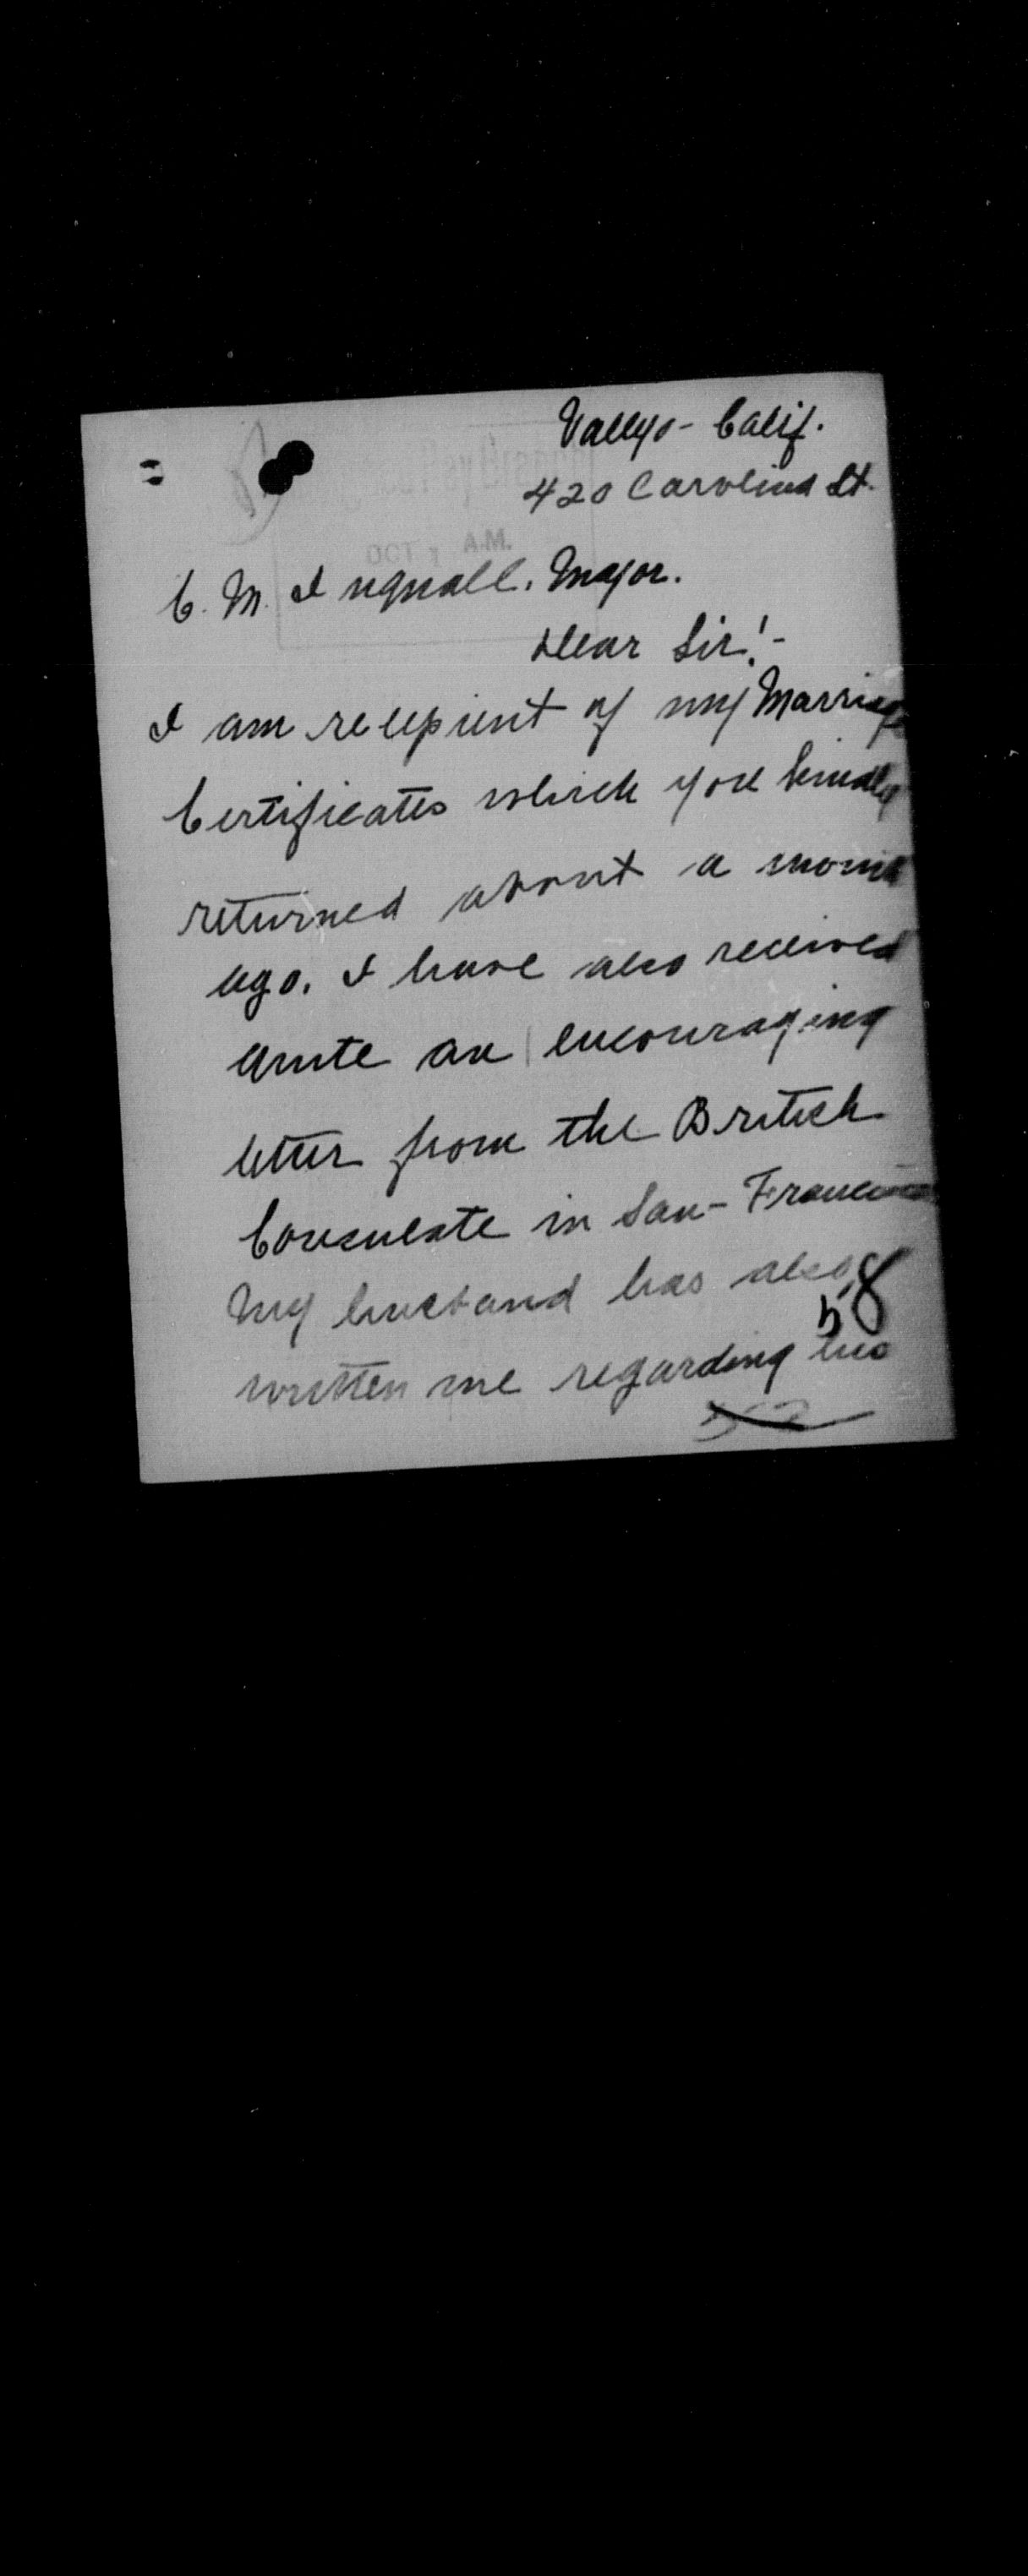 Vallejo - Calif.
420 Carolina St.
OCT A.M.
C. M. Ingnall. Major.
Dear Sir! -
I am recepient of my Marriage
Certificates which you kindly
returned about a month
ago. I have also received
quite an encouraging
letter from the British
Consulate in San - Francisco
My husband has also
58
written me regarding his